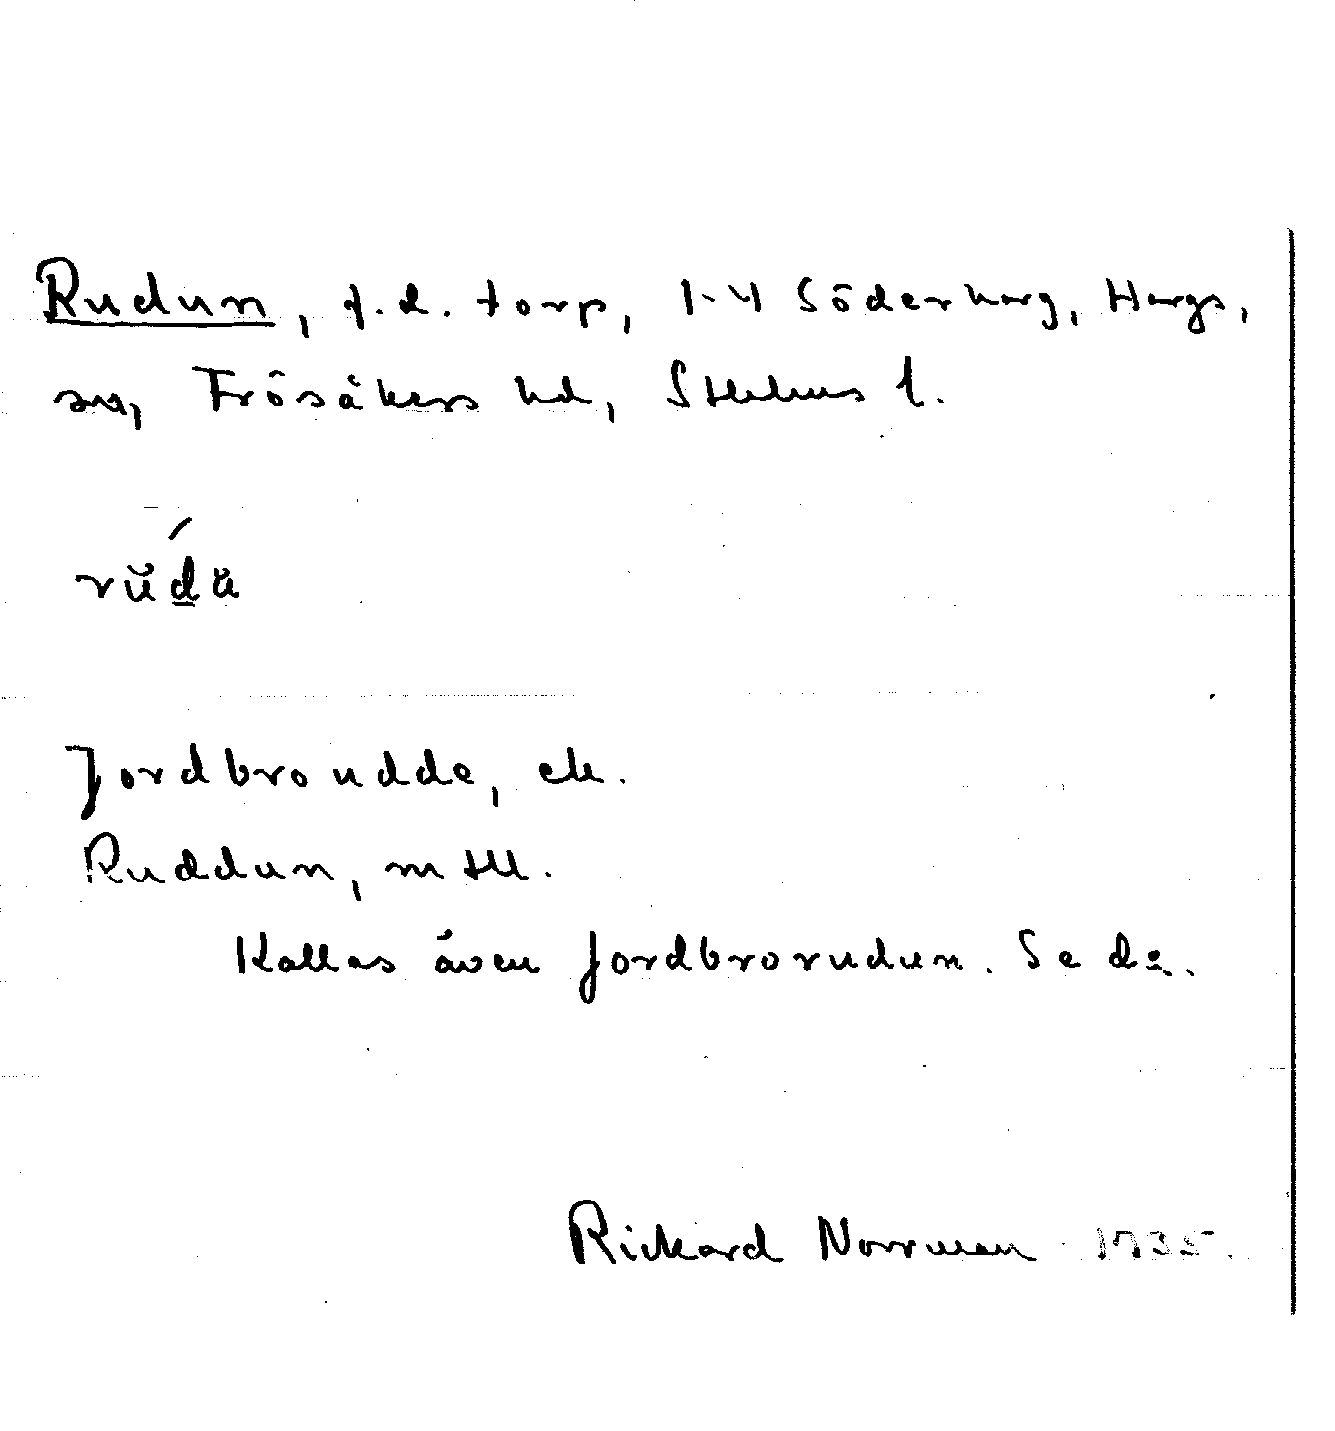 Rudun, f.d. torp, 1-4 Söderharg, Hargs,
sn, Frösåkers hd, Sthlms l.
rŭd́ŭ
Jordbroudde, ek.
Ruddun, mtll.
Kallas även Jordbrorudun. Se d:o.
Rickard Norrman 1935.